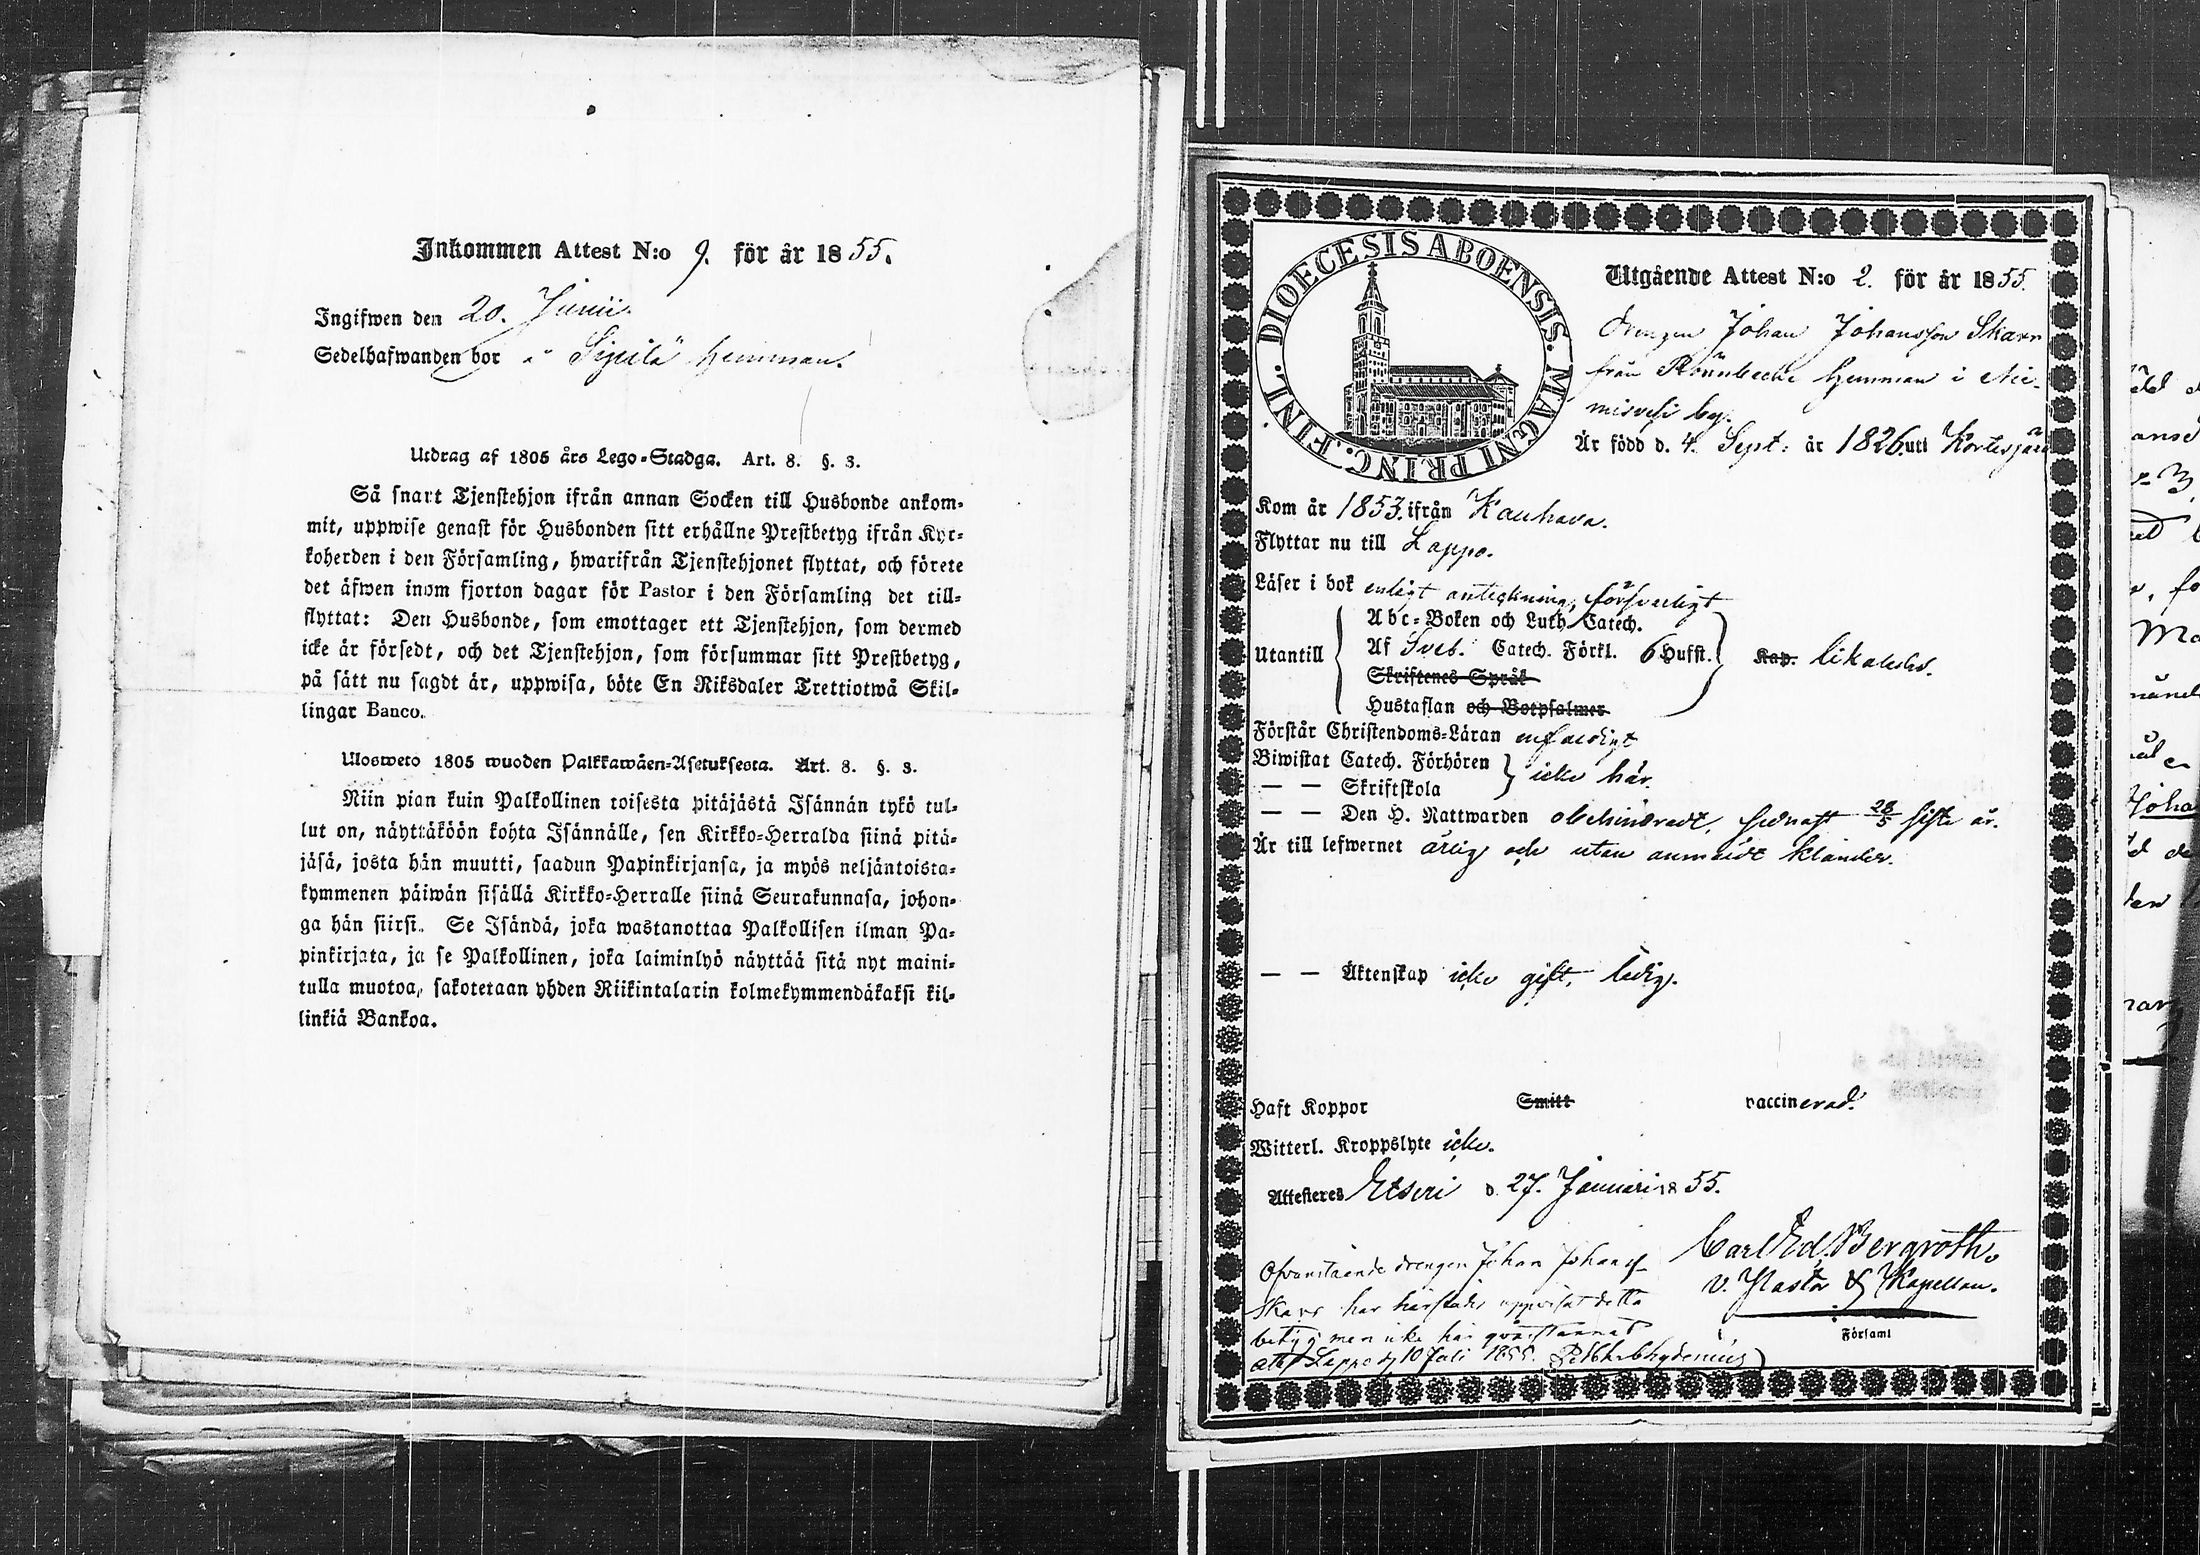 Inkommen Attest N:o 9. för år 1855.
Ingifwen den 20. Junii.
Sedelhafwanden bor å Sipilä hemman.
Utdrag af 1805 års Lego-Stadga. Art. 8. §. 3.
Så snart Tjenstehjon ifrån annan Socken till Husbonde ankom-
mit, uppwise genast för Husbonden sitt erhållne Prestbetyg ifrån Kyr-
koherden i den Församling, hwarifrån Tjenstehjonet flyttat, och förete
det äfwen inom fjorton dagar för Pastor i den Församling det till-
flyttat: Den Husbonde, som emottager ett Tjenstehjon, som dermed
icke är försedt, och det Tjenstehjon, som försummar sitt Prestbetyg,
på sätt nu sagdt är, uppwisa, böte En Riksdaler Trettiotwå Skil-
lingar Banco.
Ulosweto 1805 wuoden Palkkawäen-Asetuksesta. Art. 8. §. 3.
Niin pian kuin Palkollinen toisesta pitäjästä Isännän tykö tul-
lut on, näyttäköön kohta Isännälle, sen Kirkko-Herralda siinä pitä-
jäsä, josta hän muutti, saadun Papinkirjansa, ja myös neljäntoista-
kymmenen päiwän sisällä Kirkko-Herralle siinä Seurakunnasa, johon-
ga hän siirsi. Se Isändä, joka wastanottaa Palkollisen ilman Pa-
pinkirjata, ja se Palkollinen, joka laiminlyö näyttää sitä nyt maini-
tulla muotoa, sakotetaan yhden Riikintalarin kolmekymmendäkaksi kil-
linkiä Bankoa.
DIOECESIS ABOENSIS. MAGNI PRINC. FINL.
Utgående Attest N:o 2. för år 1855.
drengen Johan Johansson Skarn
från Rönnbecki hemman i Nie-
misvesi by.
Är född d. 4. Sept: år 1826 uti Kortesjärvi
Kom år 1853. ifrån Kauhava.
Flyttar nu till Lappo.
Läser i bok enligt anteckning, försvarligt
Abc-Boken och Luth. Catech.
Utantill Af Sveb. Catech. Förkl. 6 Hufst. Kap. likaledes.
Skriftenes Språk
Hustaflan och Botpsalmer
Förstår Christendoms-Läran enfaldigt
Biwistat Catech. Förhören
— — Skriftskola icke här.
— — Den H. Nattwarden obehindradt, sednast 28/5 siste år.
Är till lefwernet ärlig och utan anmäldt klander.
— — Äktenskap icke gift, ledig.
Haft Koppor Smitt vaccinerad.
Witterl. Kroppslyte icke.
Attesteres Etseri d. 27. Januari 1855.
Carl Ed. Bergroth.
v. Pastor & Kapellan.
Församl
Ofvanstående drengen Johan Johanss.
Skarn har härstädes uppvisat detta
betyg men icke här qvarstannat
att. Lappo d 10 Juli 1855.